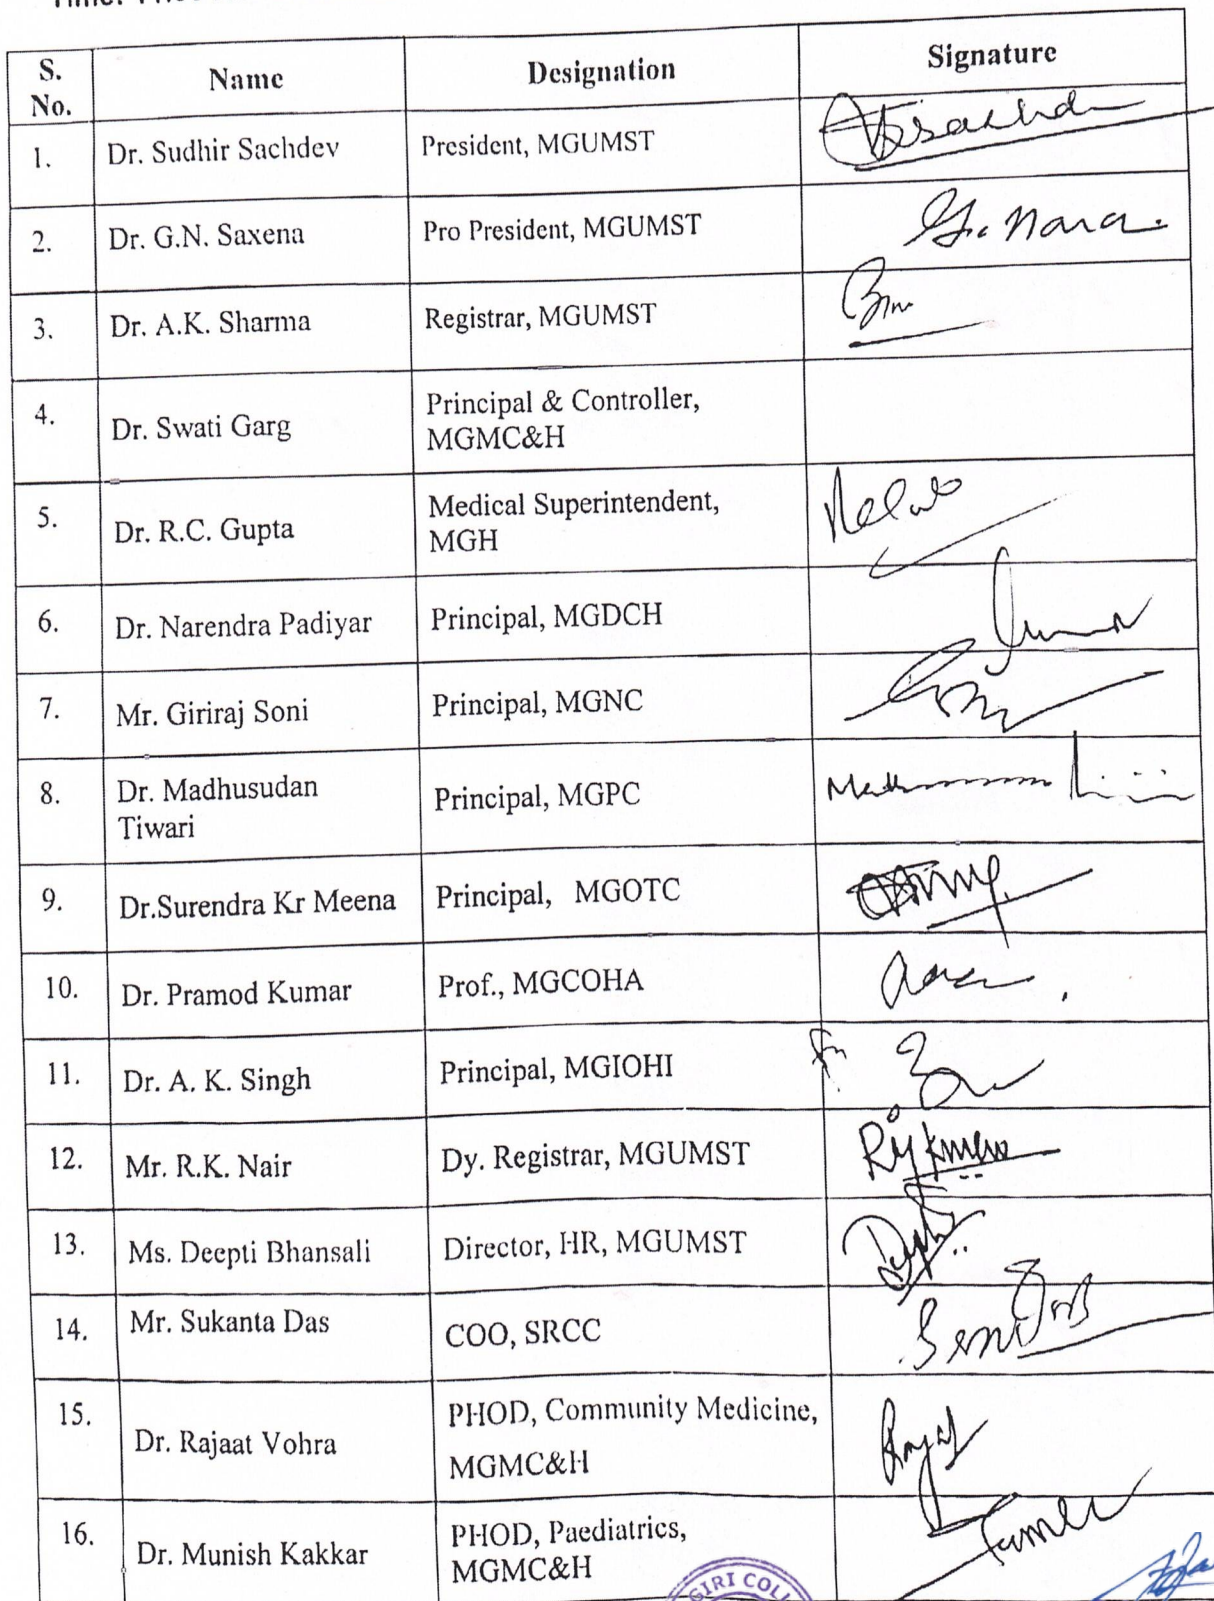 Time:
S. No. Name Designation Signature
1. Dr. Sudhir Sachdev President, MGUMST
2. Dr. G.N. Saxena Pro President, MGUMST
3. Dr. A.K. Sharma Registrar, MGUMST
4. Dr. Swati Garg Principal & Controller,
MGMC&H
5. Dr. R.C. Gupta Medical Superintendent,
MGH
6. Dr. Narendra Padiyar Principal, MGDCH
7. Mr. Giriraj Soni Principal, MGNC
8. Dr. Madhusudan
Tiwari Principal, MGPC
9. Dr.Surendra Kr Meena Principal, MGOTC
10. Dr. Pramod Kumar Prof., MGCOHA
11. Dr. A. K. Singh Principal, MGIOHI
12. Mr. R.K. Nair Dy. Registrar, MGUMST
13. Ms. Deepti Bhansali Director, HR, MGUMST
14. Mr. Sukanta Das COO, SRCC
15. Dr. Rajaat Vohra PHOD, Community Medicine,
MGMC&H
16. Dr. Munish Kakkar PHOD, Paediatrics,
MGMC&H